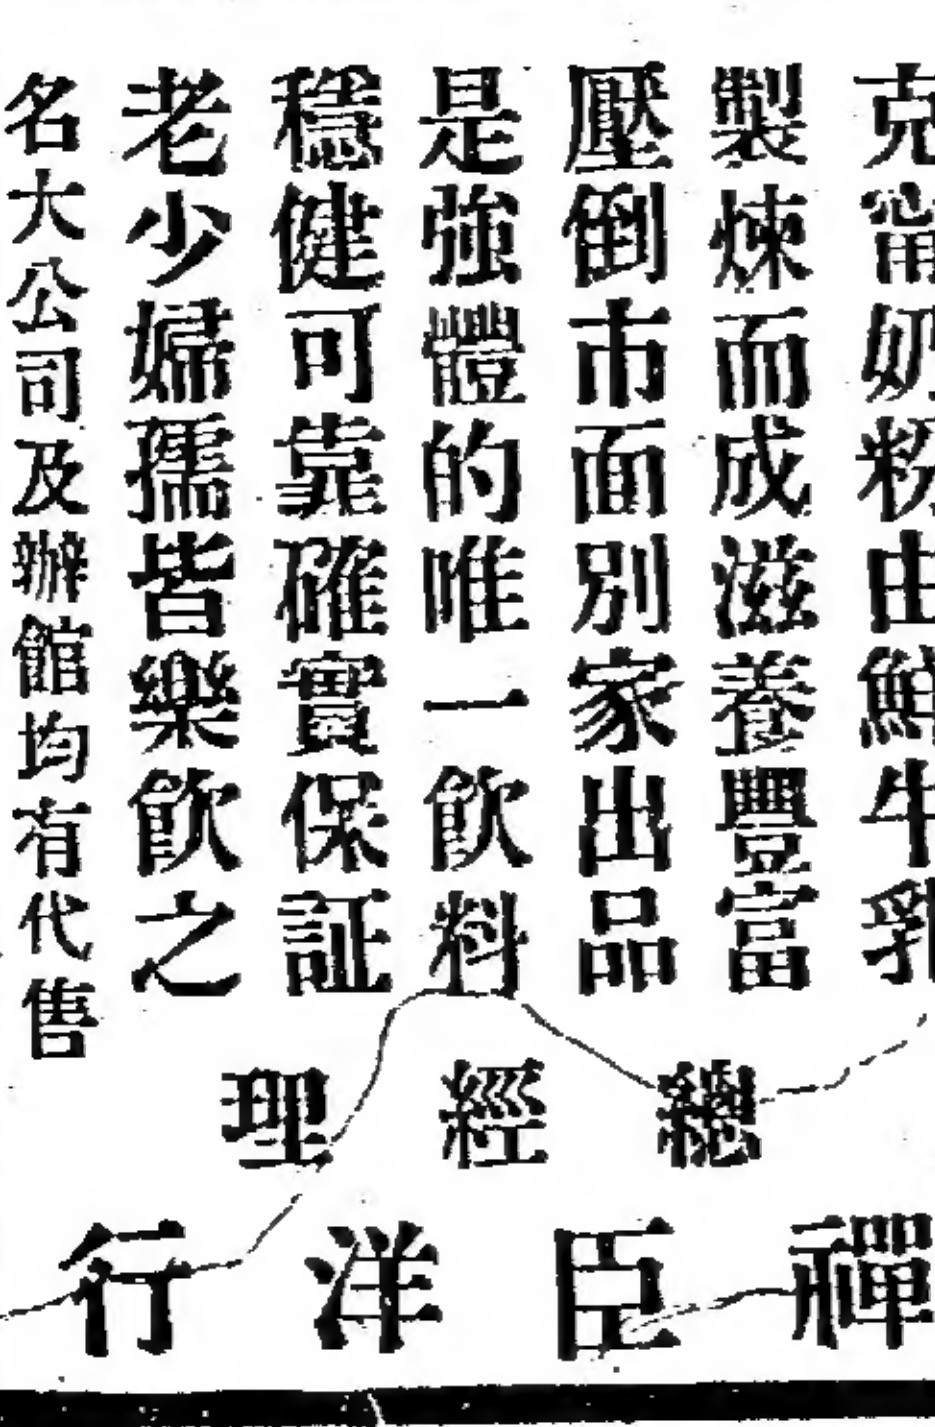 克甯奶粉由鮮牛乳
製煉而成滋養豐富
壓倒市面別家出品
是強體的唯一飲料
穩健可靠確實保証
老少婦孺皆樂飲之
名大公司及辦館均有代售
總經理
禪臣洋行